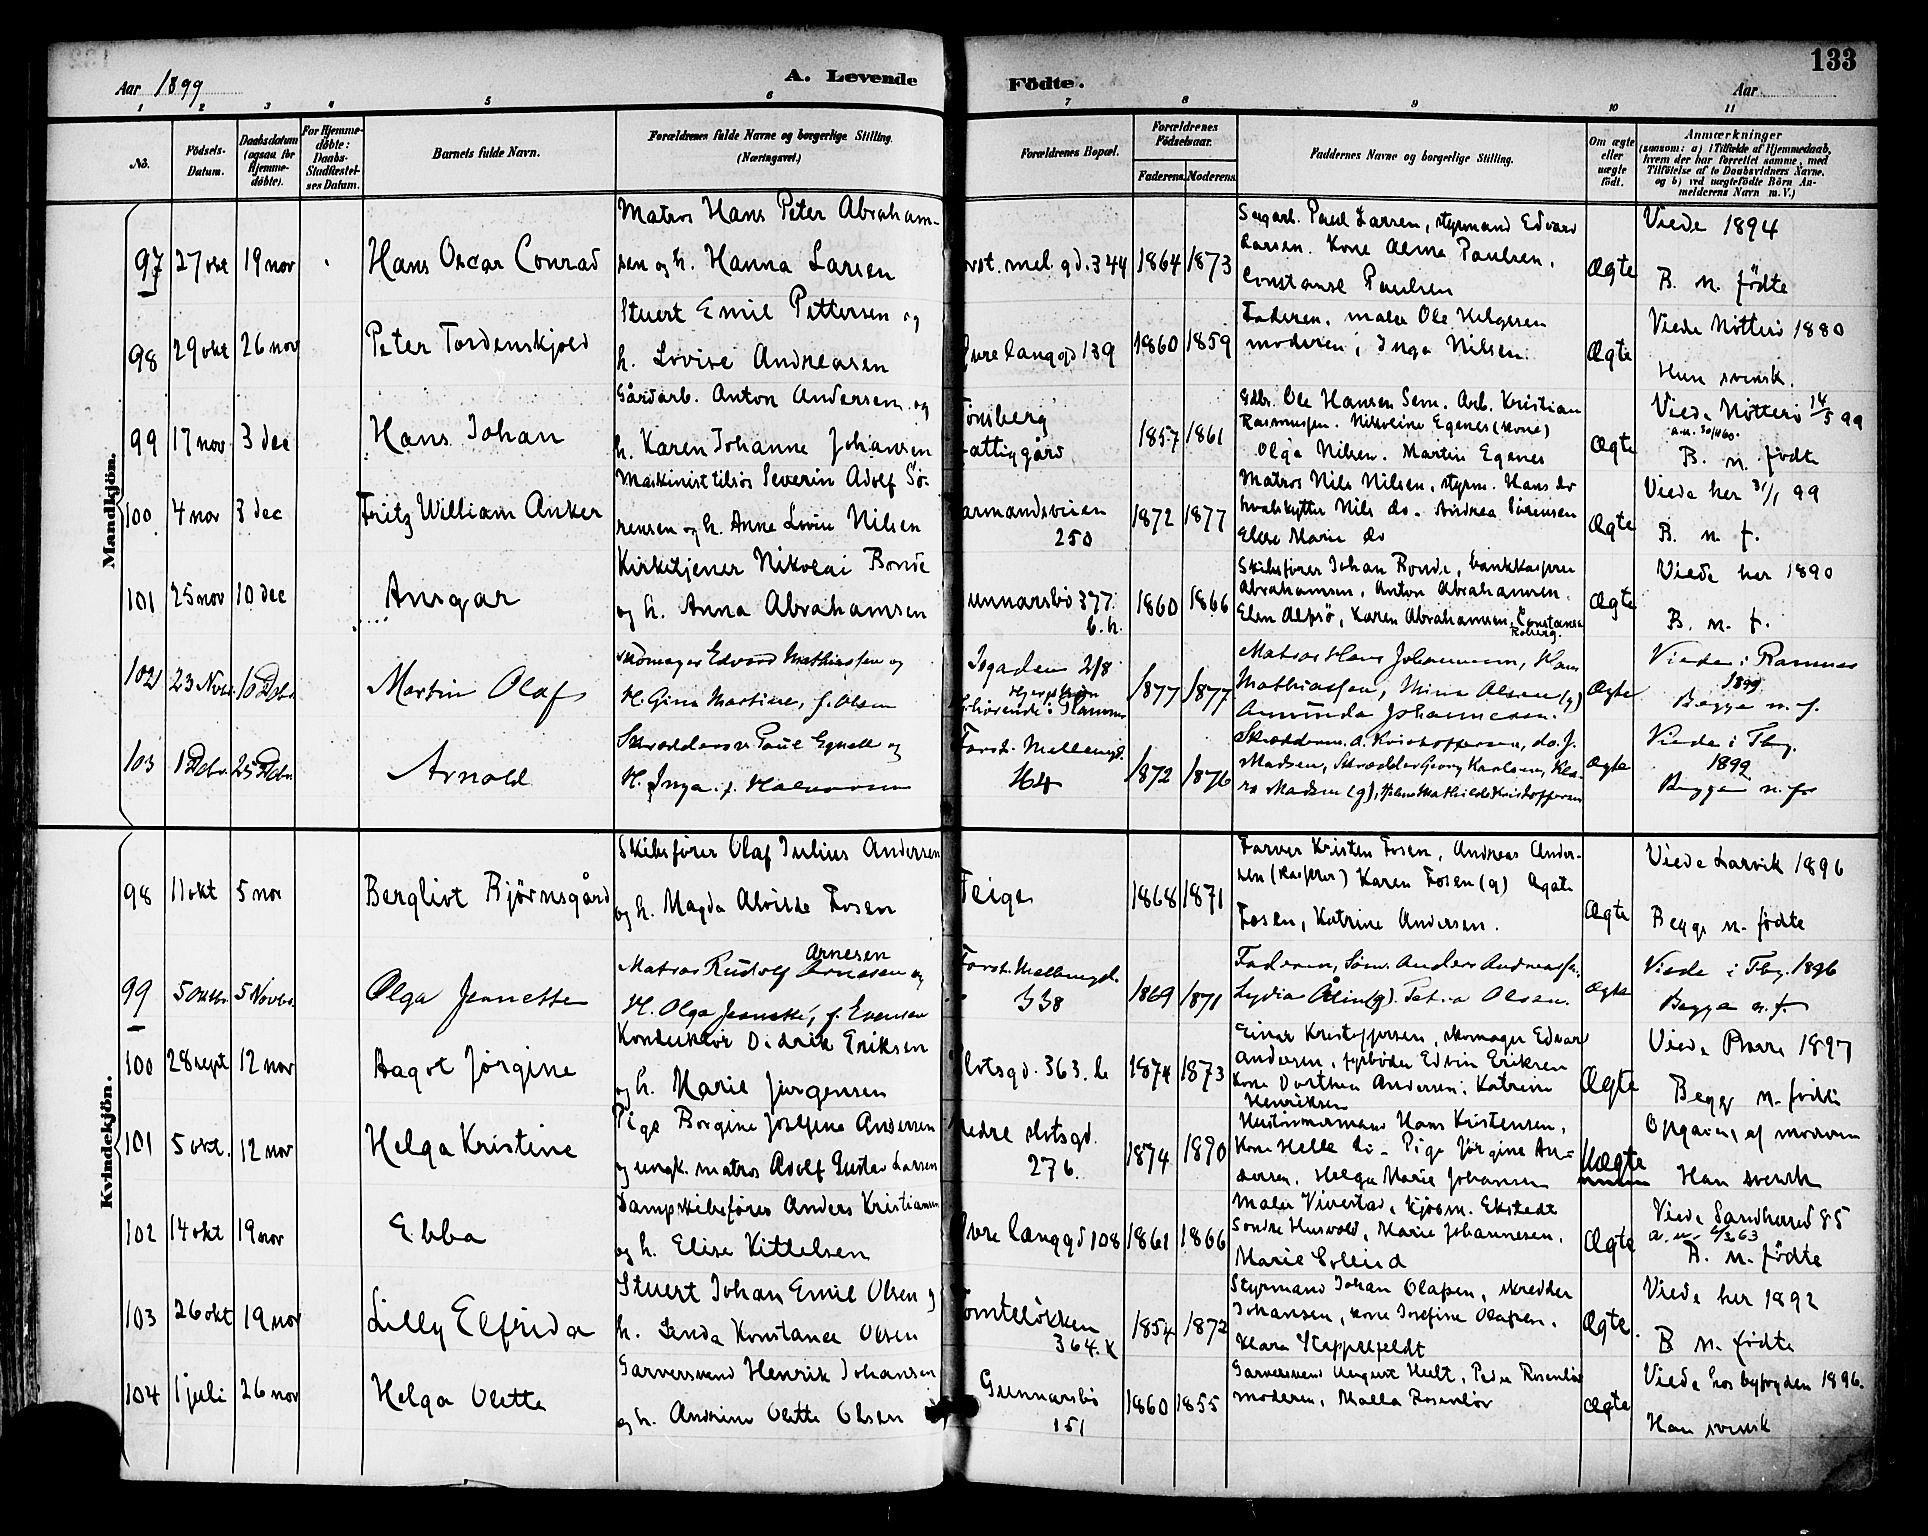 133
Aar 1899
A. Levende
Födte.
Aar
1 2 3 4 5 6 7 8 9 10 11
No.
Födsels-Datum.
Daabsdatum (ogsaa for Hjemme-döbte).
For Hjemme-döbte: Daabs-Stadfæstel-ses Datum.
Barnets fulde Navn.
Forældrenes fulde Navne og borgerlige Stilling. (Næringsvei.)
Forældrenes Bopæl.
Forældrenes Födselsaar.
Faderens. Moderens.
Faddernes Navne og borgerlige Stilling.
Om ægte eller uægte födt.
Anmærkninger
(saasom: a) i Tilfælde af Hjemmedaab, hvem der har forrettet samme, med Tilföielse af to Daabsvidners Navne, og b) ved uægtefödte Börn An-melderens Navn m. V.)
Mandkjön.
97 27 okt 19 nov Hans Oscar Conrad
Matros Hans Peter Abraham-
sen og h. Hanna Larsen
mel. gd. 344 1864 1873
Sagarb. Paul Larsen, styrmand Edvard
Larsen. Kone Alma Paulsen,
Constanse Paulsen
Ægte
Viede 1894
B. n. fødte
98 29 okt 26 nov Peter Tordenskjold
Stuert Emil Pettersen og
h. Lovise Andreasen
langgd 139 1860 1859
Faderen, maler Ole Helgesen
moderen, Inga Nilsen.
Ægte
Viede Nötterö 1880
Hun svensk.
99 17 nov 3 dec Hans Johan
Gårdarb. Anton Andersen og
h. Karen Johanne Johansen
Tönsberg
fattiggård
1857 1861
Gdbr. Ole Hansen Sem. Arb. Kristian
Rasmussen. Nikoline Egenes (kone)
Olga Nilsen. Martin Egenes
Ægte
Viede Nötterö 14/5 99
B. n. fødte
100 4 nov 3 dec Fritz William Anker
Maskinist tilsös Severin Adolf Sö-
rensen og h. Anna Lovise Nilsen
250
1872 1877
Matros Nils Nilsen, styrm. Hans do
hvalskytter Nils do. Andrea Sörensen
Marie do
Ægte
Viede her 31/1 99
B. n. f.
101 25 nov 10 dec Ansgar
Kirketjener Nikolai Bonde
og h. Anna Abrahamsen
Gunnarsbö 377
b. h.
1860 1866
Skibsfører Johan Bonde, bankkasserer
Abrahamsen, Anton Abrahamsen.
Elen Karen Abrahamsen, Constanse
Ægte
Viede her 1890
B. n. f.
102 23 Novbr. 10 Decbr. Martin Olaf
Skomager Edvard Mathiassen og
H. Gina Martine, f. Olsen
218
i Ramnes
1877 1877
Matros Hans Johannesen, Hans
Mathiassen, Mina Olsen (g)
Amunda Johannesen.
Ægte
Viede i Ramnes
1899
Begge n. f.
103 1 Decbr. 25 Decbr. Arnold
Paul og
H. Inga f.
Forst. Mellemgd.
44
1872 1876
Skrædderm. A. Kristoffersen, do. J.
Madsen, Skrædder Georg Karlsen, Kla-
ra Madsen (g), Mathilde Kristoffersen
Ægte
Viede i Tbg.
1899
Begge n. f.
Kvindekjön.
98 11 okt 5 nov Bergliot Björnsgård
Skibsfører Olaf Julius Andersen
og h. Magda Alvilde Fosen
Teige 1868 1871
Farver Kristen Fosen, Andreas Ander-
sen (kasserer) Karen Fosen (g) Agate
Fosen, Katrine Andersen.
Ægte
Viede Larvik 1896
Begge n. fødte
99 5 Oktbr. 5 Novbr. Olga Jeanette
Arnesen
Matros Rudolf Arnesen og
H. Olga Jeanette, f. Evensen
Forst. Mellemgd.
338
1869 1871
Faderen, Søm. Anders Andreassen.
Lydia (g). Petra Olsen.
Ægte
Viede i Tbg. 1896
Begge n. f.
100 28 sept 12 nov Aagot Jørgine
Konduktör Didrik Eriksen
og h. Marie Jørgensen
363. 1874 1873
Einar Kristoffersen, skomager Edvard
Andersen, fyrböder Edvin Eriksen
Kone Dorthea Andersen, Katrine
Henriksen
Ægte
Viede 1897
Begge n. fødte
101 5 okt. 12 nov Helga Kristine
Pige Borgine Josefine Andersen
og ungk. matros Adolf Gustav Larsen
Nedre slotsgd.
276
1874 1870
Hustömmermand Hans Kristensen,
Kone Helle do - Pige Jørgine An-
dersen. Helga Marie Johansen
Uægte
Opgaven af moderen
Han svensk
102 14 okt 19 nov Ebba
Dampskibsfører Anders Kristiansen
og h. Elise Kittelsen
Øvre langgd 108 1861 1866
Maler Kjøbm. Ekstedt
Sondre Marie Johannesen,
Marie
Ægte
Viede Sandherred 85
B. n. fødte
103 26 okt 19 nov Lilly Elfrida
Stuert Johan Emil Olsen og
h. Konstance Olsen
Tomteløkken
364. K
1854 1872
Styrmand Johan Olafsen, skredder
Johansen, kone Josefine Olafsen,
Klara
Ægte.
Viede her 1892
B n. fødte
104 1 juli 26 nov Helga Olette
Garversvend Henrik Johansen
og h. Andrine Olette Olsen
Gunnarsbö
151
1860 1855
Garversvend August Peder Rosenlöv
moderen, Rosenlöv
Ægte
Viede hos byfogden 1896.
Han svensk